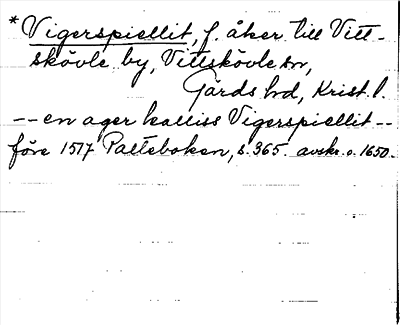 *Vigerspiellit, f. åker till Vitt-
skövle by, Vittskövle sn,
Gärds hd, Krist. l.
-- en ager kalliss Vigerspiellit --
före 1517 Palteboken, s. 365. avskr. o. 1650.